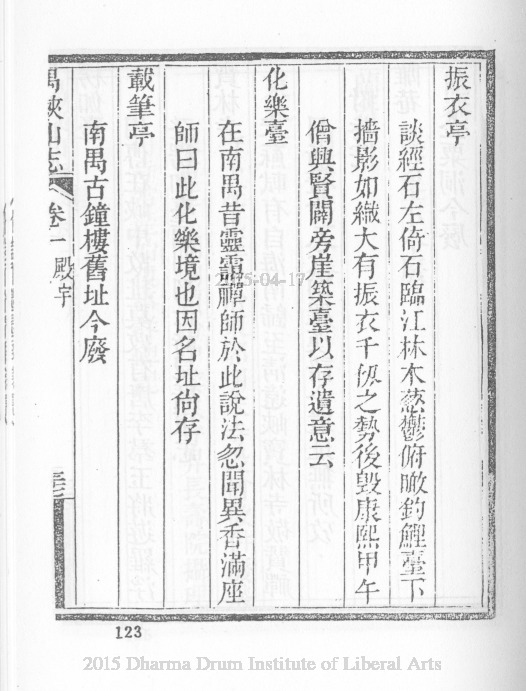 振衣亭
談經石左倚石臨江林木葱鬱俯瞰釣鯉臺下
牆影如織大有振衣千仭之勢後毀康熙甲午
僧興賢闢旁崖築臺以存遺意云
化樂臺
在南禺昔靈靄禪師於此說法忽聞異香滿座
師曰此化樂境也因名址尙存
載筆亭
南禺古鐘樓舊址今廢
禺峽山志 卷一 殿宇
2015-04-17
123
2015 Dharma Drum Institute of Liberal Arts